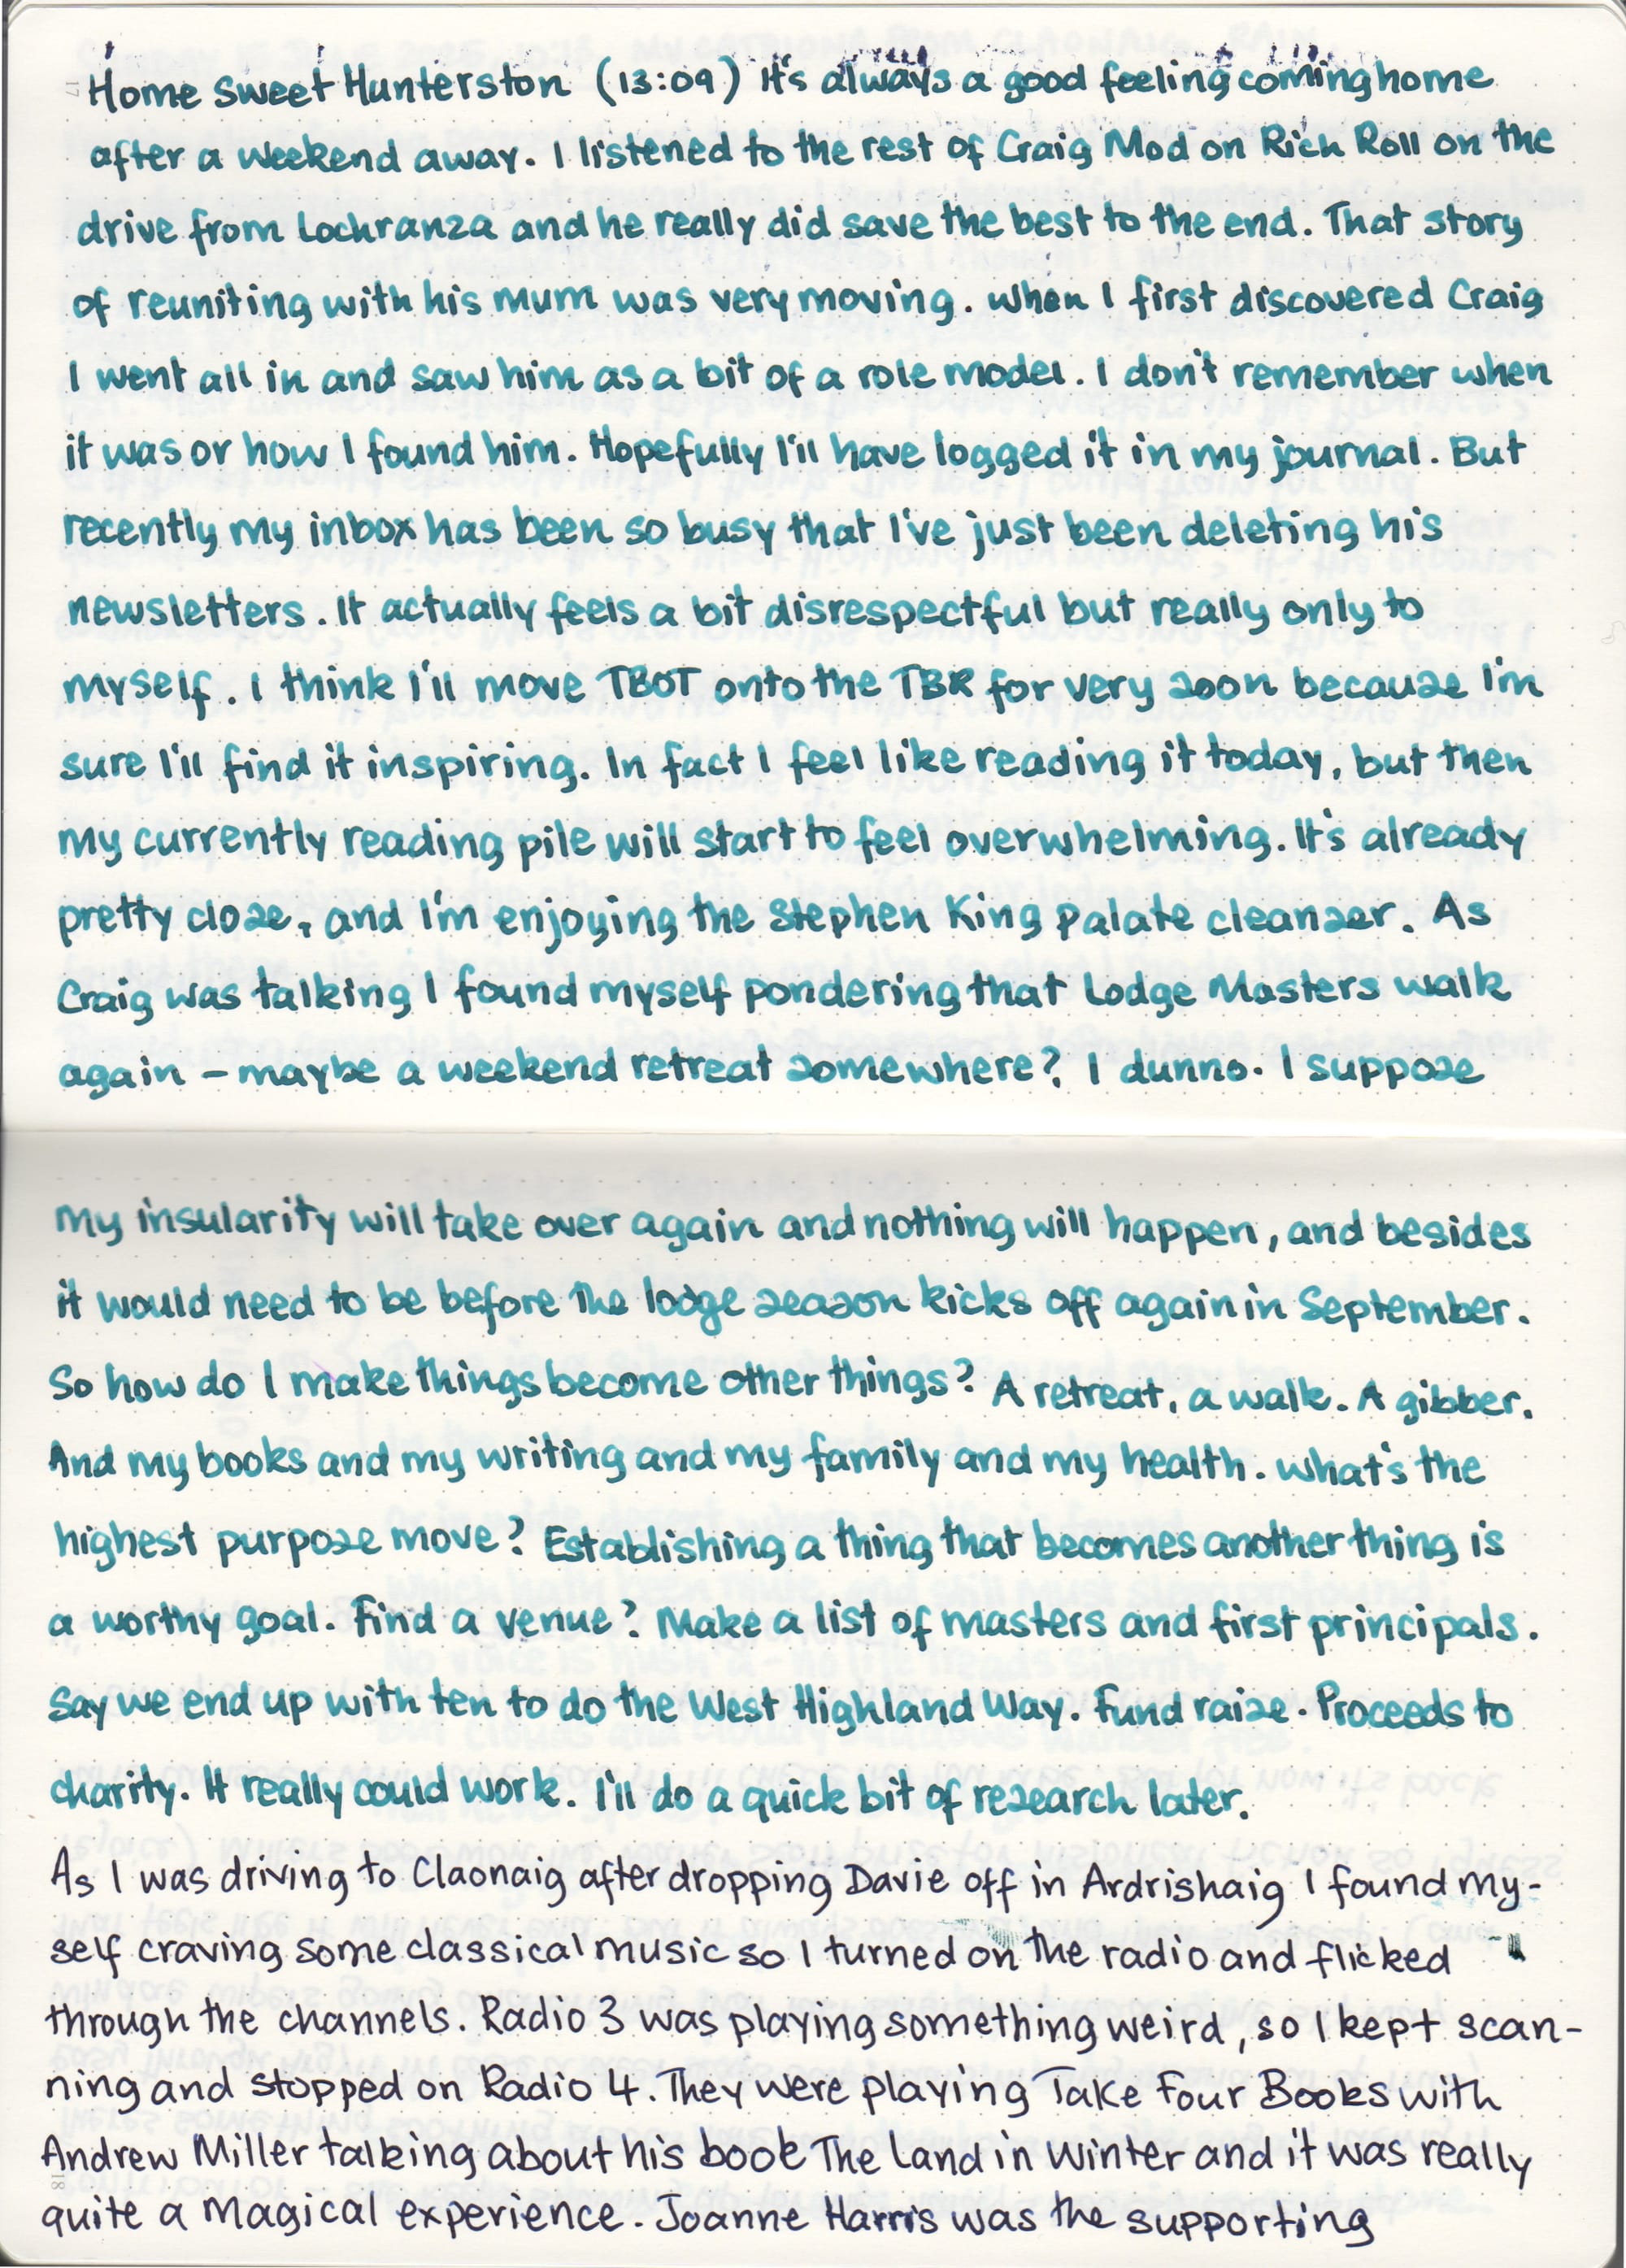 Home Sweet Hunterston (13:09) It's always a good feeling coming home
after a weekend away. I listened to the rest of Craig Mod on Rich Roll on the
drive from Lochranza and he really did save the best to the end. That story
of reuniting with his mum was very moving. When I first discovered Craig
I went all in and saw him as a bit of a role model. I don't remember when
it was or how I found him. Hopefully I'll have logged it in my journal. But
recently my inbox has been so busy that I've just been deleting his
newsletters. It actually feels a bit disrespectful but really only to
myself. I think I'll move TBOT onto the TBR for very soon because I'm
sure I'll find it inspiring. In fact I feel like reading it today, but then
my currently reading pile will start to feel overwhelming. It's already
pretty close, and I'm enjoying the Stephen King palate cleanser. As
Craig was talking I found myself pondering that Lodge Masters walk
again – maybe a weekend retreat somewhere? I dunno. I suppose
my insularity will take over again and nothing will happen, and besides
it would need to be before the lodge season kicks off again in September.
So how do I make things become other things? A retreat, a walk. A gibber.
And my books and my writing and my family and my health. What's the
highest purpose move? Establishing a thing that becomes another thing is
a worthy goal. Find a venue? Make a list of masters and first principals.
Say we end up with ten to do the West Highland Way. Fund raise. Proceeds to
charity. It really could work. I'll do a quick bit of research later.
As I was driving to Claonaig after dropping Davie off in Ardrishaig I found my-
self craving some classical music so I turned on the radio and flicked
through the channels. Radio 3 was playing something weird, so I kept scan-
ning and stopped on Radio 4. They were playing Take Four Books with
Andrew Miller talking about his book The Land in Winter and it was really
quite a magical experience. Joanne Harris was the supporting